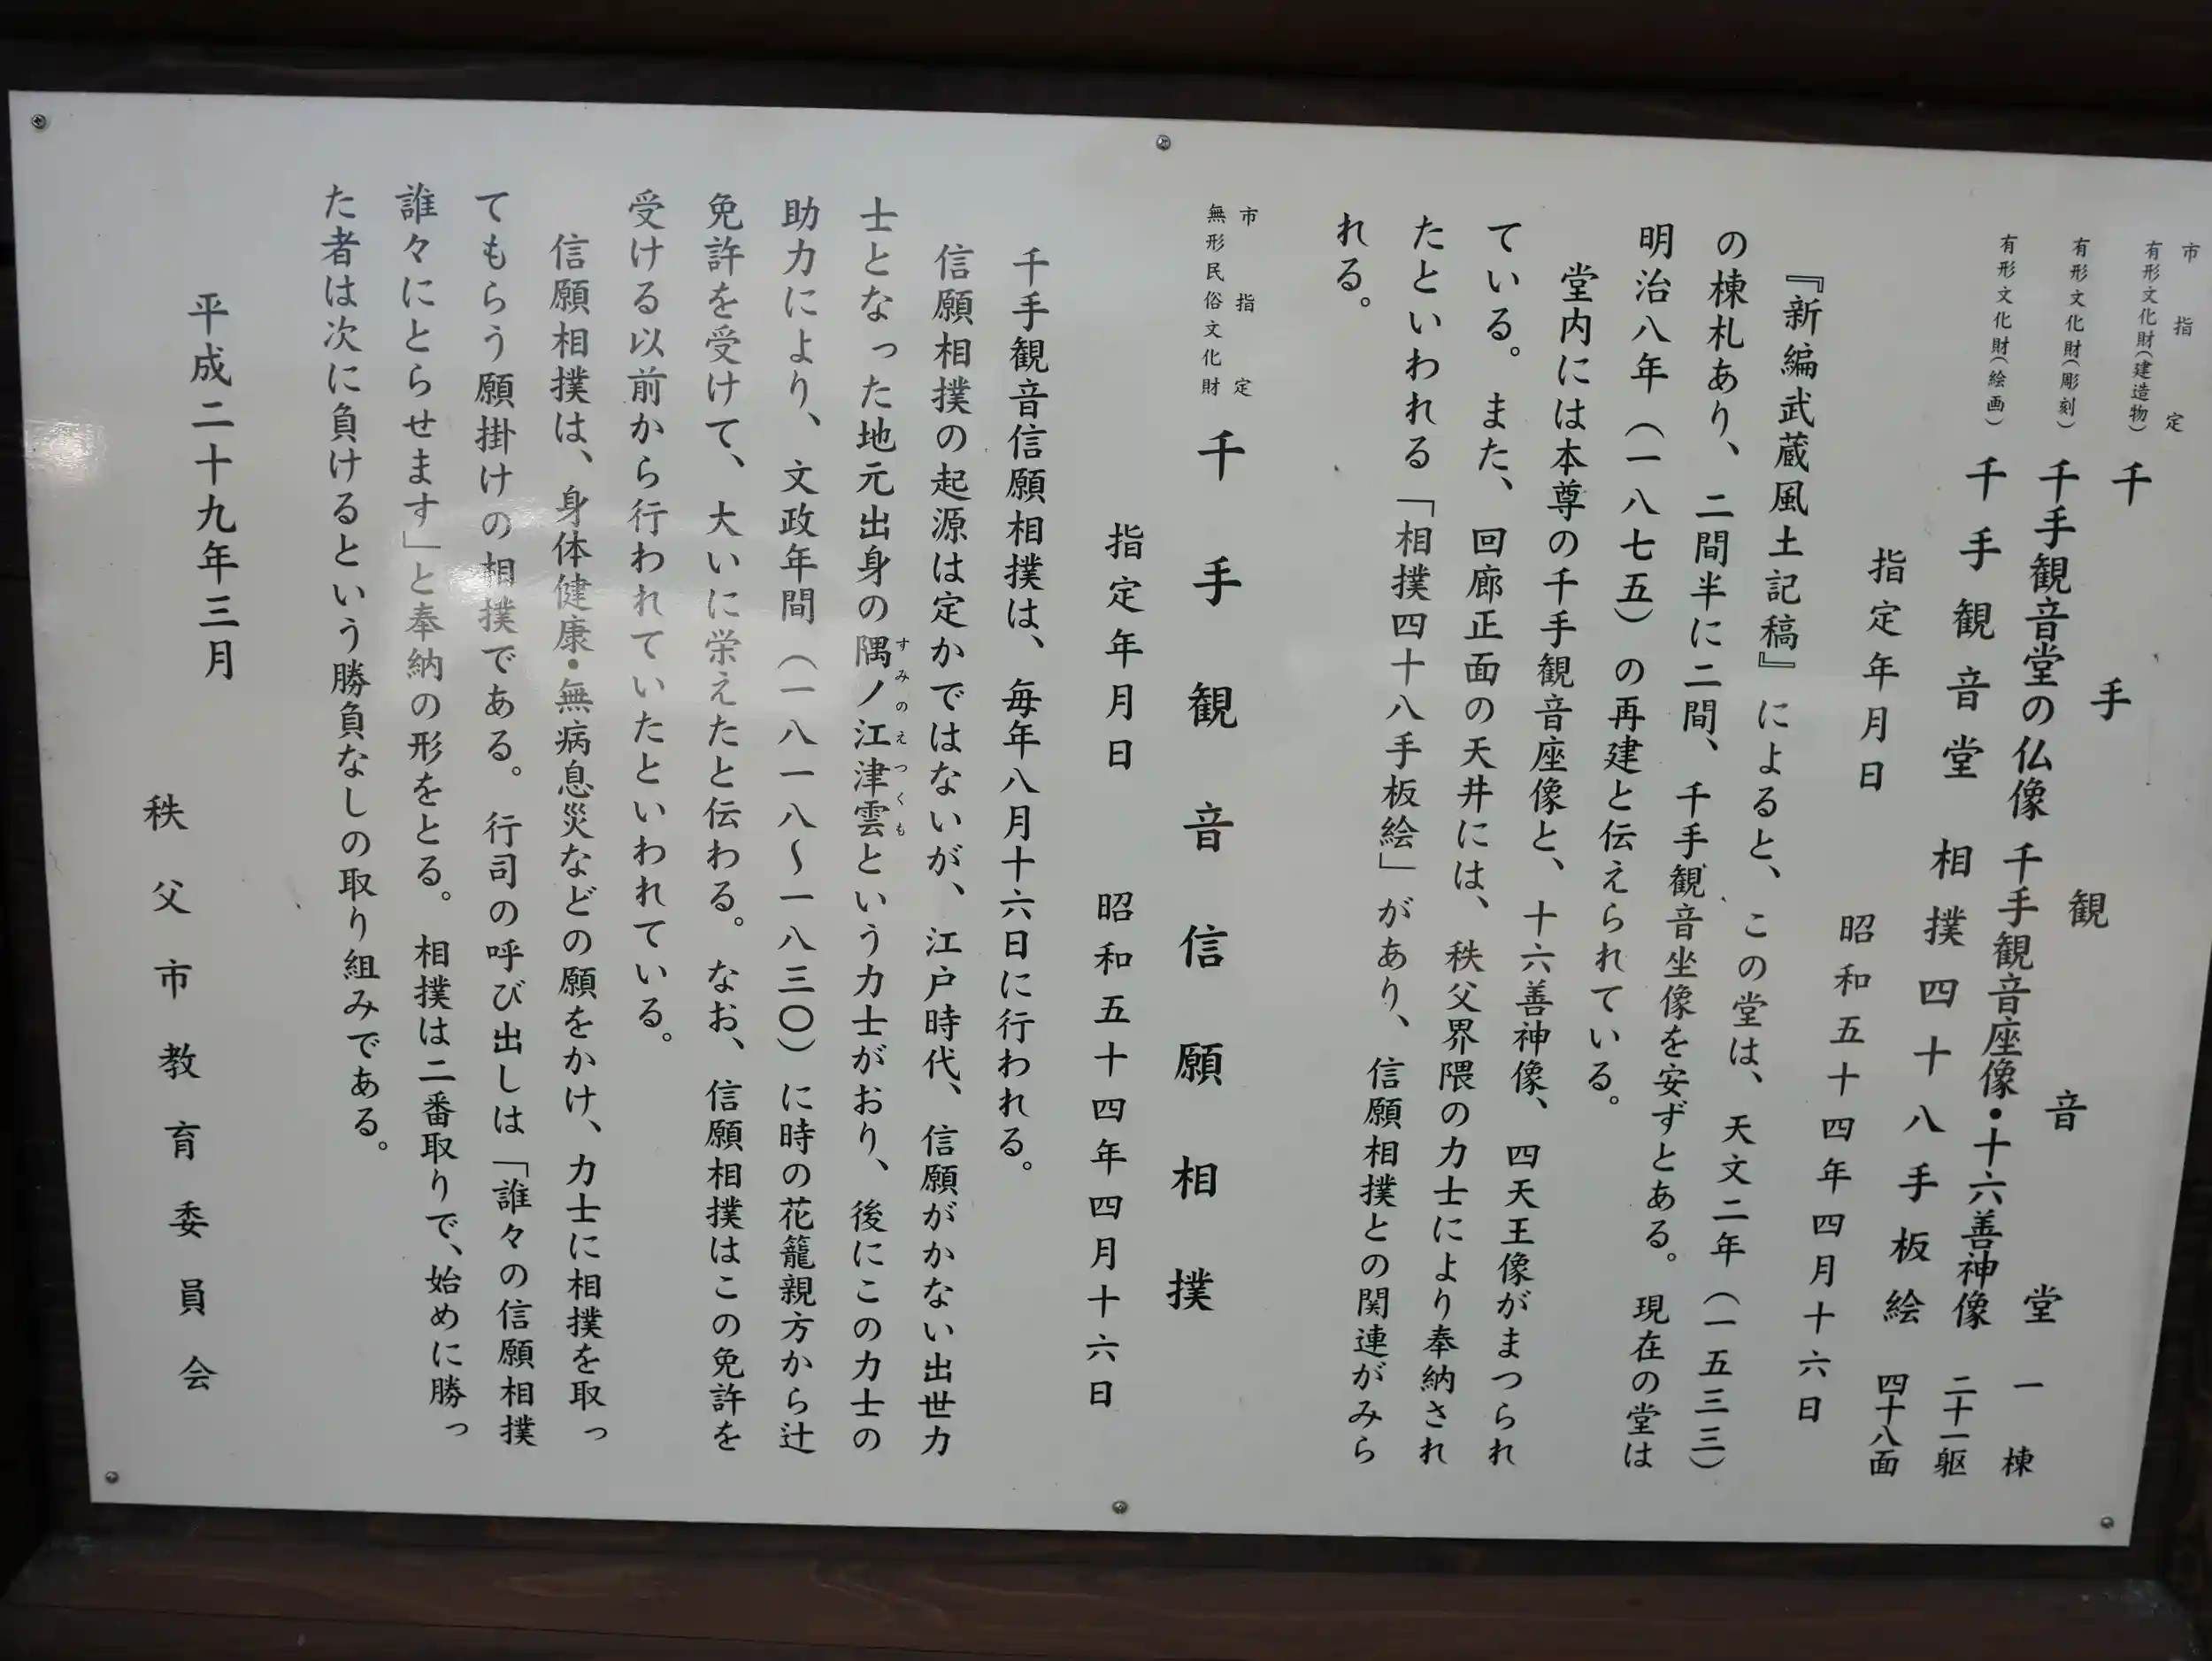 市指定
有形文化財(建造物) 千手観音堂 一棟
有形文化財(彫刻) 千手観音堂の仏像 千手観音座像・十六善神像 二十一躯
有形文化財(絵画) 千手観音堂 相撲四十八手板絵 四十八面
指定年月日 昭和五十四年四月十六日
『新編武蔵風土記稿』によると、この堂は、天文二年(一五三三)
の棟札あり、二間半に二間、千手観音坐像を安ずとある。現在の堂は
明治八年(一八七五)の再建と伝えられている。
堂内には本尊の千手観音座像と、十六善神像、四天王像がまつられ
ている。また、回廊正面の天井には、秩父界隈の力士により奉納され
たといわれる「相撲四十八手板絵」があり、信願相撲との関連がみら
れる。
市指定
無形民俗文化財 千手観音信願相撲
指定年月日 昭和五十四年四月十六日
千手観音信願相撲は、毎年八月十六日に行われる。
信願相撲の起源は定かではないが、江戸時代、信願がかない出世力
士となった地元出身の隅ノ江津雲という力士がおり、後にこの力士の
すみのえつくも
助力により、文政年間(一八一八~一八三〇)に時の花籠親方から辻
免許を受けて、大いに栄えたと伝わる。なお、信願相撲はこの免許を
受ける以前から行われていたといわれている。
信願相撲は、身体健康・無病息災などの願をかけ、力士に相撲を取っ
てもらう願掛けの相撲である。行司の呼び出しは「誰々の信願相撲
誰々にとらせます」と奉納の形をとる。相撲は二番取りで、始めに勝っ
た者は次に負けるという勝負なしの取り組みである。
平成二十九年三月
秩父市教育委員会